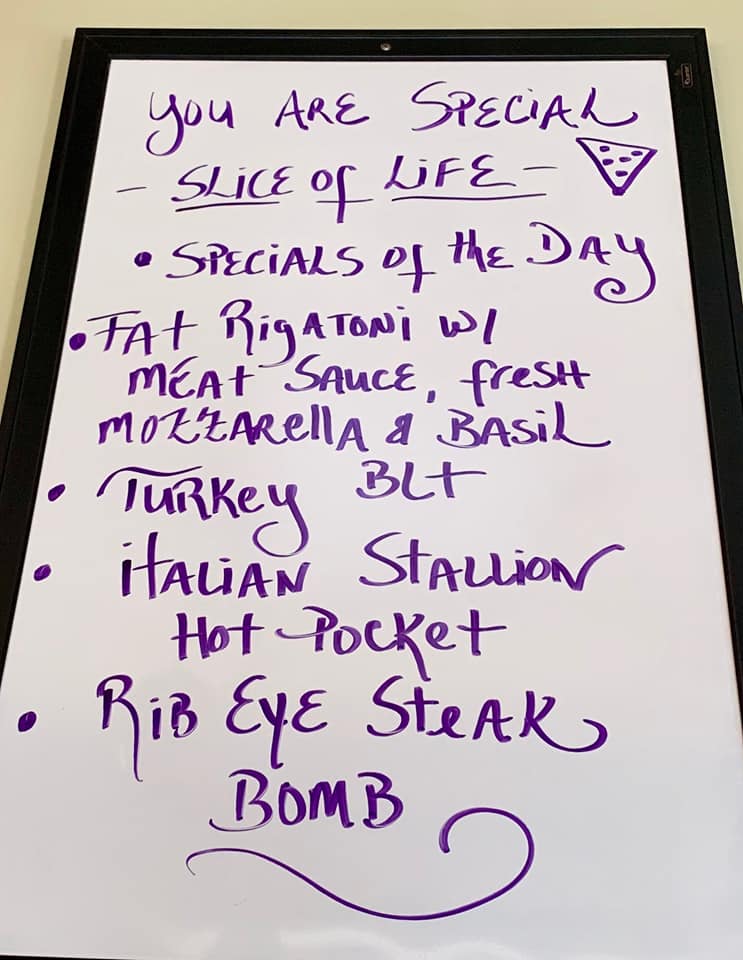 You ARE SPECiAL
- SLiCE Of LiFE -
• SPECiALS Of the DAY
• FAt RigATONi W/
MEAt SAUCE, fresH
MOZZARellA & BASiL
• TURKey BLt
• iTALiAN StALLiON
Hot POCKet
• RiB EYE SteAK
BOMB